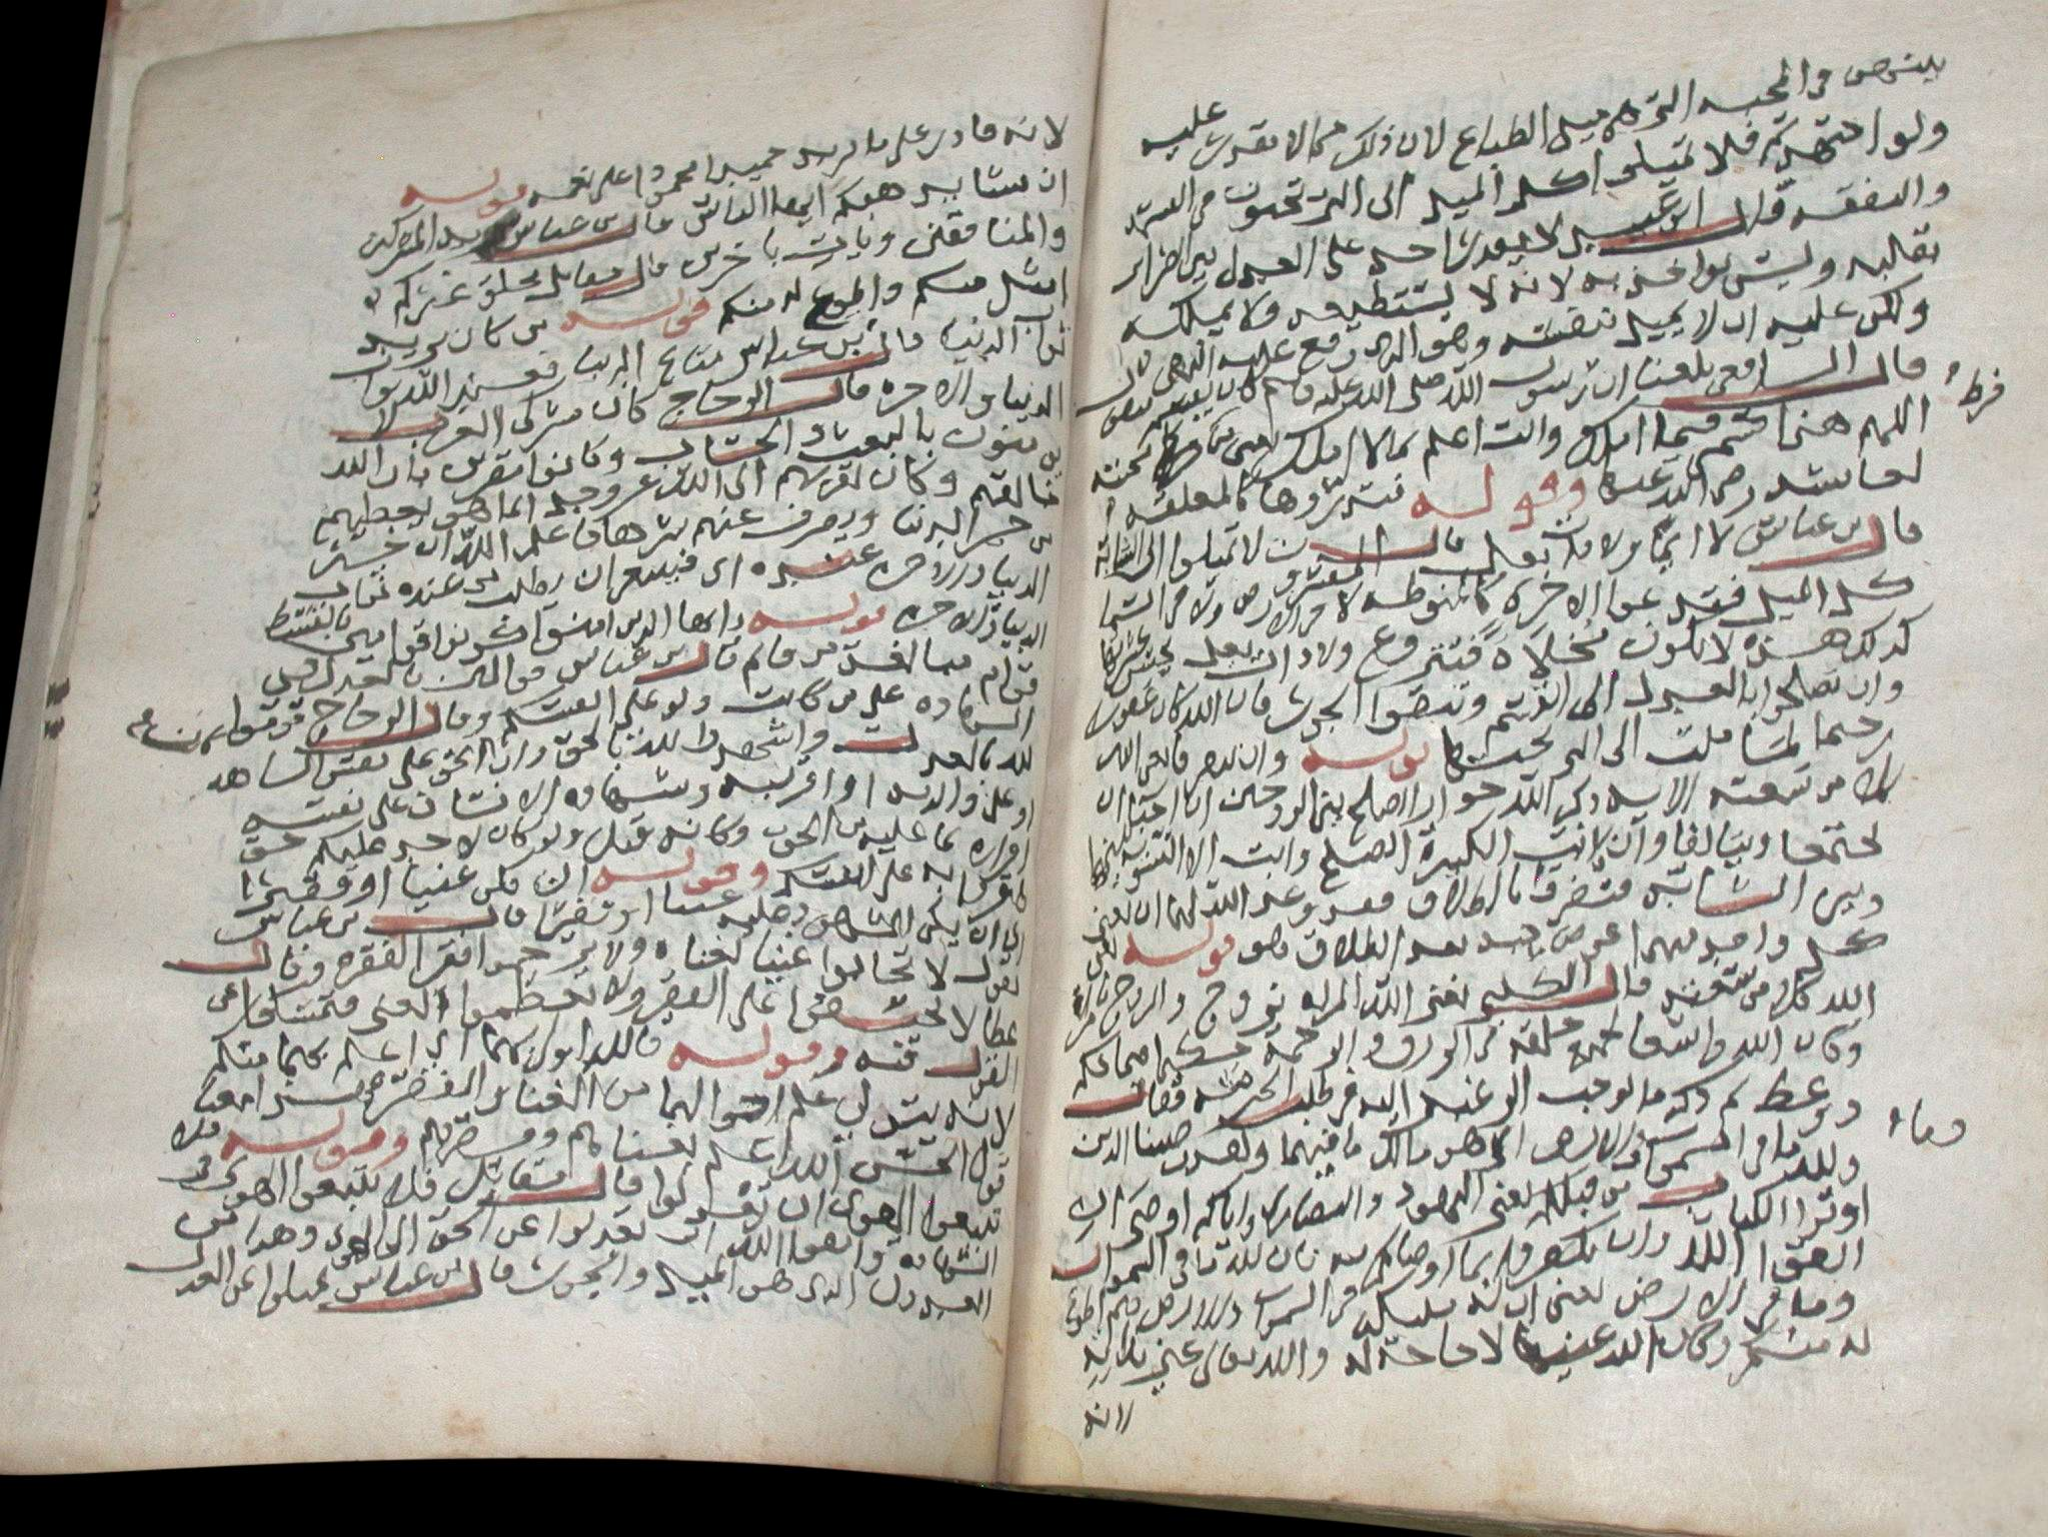 بينهن في المحبة التي هي ميل الطباع لان ذلك مما لا تقدرون عليه
ولو اجتهدتم فلا تميلوا كل الميل الى التي تحبون في القسمة
والنفقة قال ابن عبيد لا يقدر احد على العدل بين الضراير
بقلبه وليس يواخذ به لانه لا يستطيعه ولا يملكه
ولكن عليه ان لا يميل بنفسه وهو الذي وقع عليه النهي
قال الشافعي بلغنا ان رسول الله صلى الله عليه وسلم كان يقسم فيقول
اللهم هذا قسمي فيما املك وانت اعلم بما لا املك يعني محبته
لعائشة رضي الله عنها وقوله فتذروها كالمعلقة
قال ابن عباس لا ايما ولا ذات بعل قال المفسرون لا تميلوا الى الشابة
كل الميل فتدعوا الاخرى كالمنوطة لا في الارض ولا في السما
كذلك هذه لا تكون مخلاة فتتزوج ولا ذات بعل
وان تصلحوا بالعدل في القسم وتتقوا الجور فان الله كان غفورا
رحيما لما ملت الى التي تحبها قوله وان يتفرقا يغن الله
كلا من سعته الاية ذكر الله جواز الصلح بين الزوجين ان احبا ان
يجتمعا ويتالفا وان ابت الكبيرة الصلح وابت الا التسوية بينها
وبين الشابة فتفرقا بالطلاق فقد وعد الله لهما ان يغني
كل واحد منهما عن صاحبه بعد الطلاق وهو قوله يغن
الله كلا من سعته قال الكلبي يغني الله المراة بزوج والزوج بامراة
وكان الله واسعا لجميع خلقه في الرزق والرحمة حكيما فيما حكم
ووعظ ثم ذكر ما يوجب الرغبة اليه في طلب الخير منه فقال
ولله ما في السموات وما في الارض اي هو مالك ما فيهما ولقد وصينا الذين
اوتوا الكتاب من قبلكم يعني اليهود والنصارى واياكم اوصى ان
اتقوا الله وان تكفروا بما اوصاكم به فان لله ما في السموات
وما في الارض يعني ان له ملائكة في السموات والارض هم اطوع
له منكم وكان الله غنيا لا حاجة له والله تعالى غني
لانه
فرط
وما
لانه قادر على ما يريد حميدا محمودا على نعمه قوله
ان يشا يذهبكم ايها الناس قال ابن عباس يريد المشركين
والمنافقين ويات باخرين قال مقاتل يخلق غيركم
امثل منكم واطوع له منكم قوله من كان يريد
ثواب الدنيا قال ابن عباس متاع الدنيا فعند الله ثواب
الدنيا والاخرة قال الزجاج كان مشركي العرب لا
يومنون بالبعث والحساب وكانوا مقرين بان الله
خالقهم وكان تقربهم الى الله عز وجل انما هو ليعطيهم
من خير الدنيا ويصرف عنهم شرها فاعلم الله ان خير
الدنيا والاخرة عنده اي فينبغي ان يطلب من عنده ثواب
الدنيا والاخرة قوله يا ايها الذين امنوا كونوا قوامين بالقسط
قوام مبالغة من قائم قال ابن عباس قوالين بالعدل في
الشهادة على من كانت ولو على انفسكم وقال الزجاج قوموا
لله بالعدل واشهدوا لله بالحق وان الحق على نفس الشاهد
او على والديه او اقربيه وشهادة الانسان على نفسه
اقراره بما عليه من الحق وكانه قيل ولو كان لاحد عليكم حق
فاقروا به على انفسكم وقوله ان يكن غنيا او فقيرا
اي ان يكن المشهود عليه غنيا او فقيرا قال ابن عباس
يقول لا تحابوا غنيا لغناه ولا ترحموا فقيرا لفقره وقال
عطا لا تحيفوا على الفقير ولا تعظموا الغني فتمسكوا عن
القول فيه وقوله فالله اولى بهما اي اعلم بهما منكم
لانه يتولى علم احوالهما من الغنا والفقر هذا معنا
قول الحسن الله اعلم بغناهم وفقرهم وقوله فلا
تتبعوا الهوى ان تعدلوا قال مقاتل فلا تتبعوا الهوى في
الشهادة واتقوا الله ان تعدلوا عن الحق الى الهوى وهذا من
العدول الذي هو الميل والجور قال ابن عباس عدلوا عن العدل